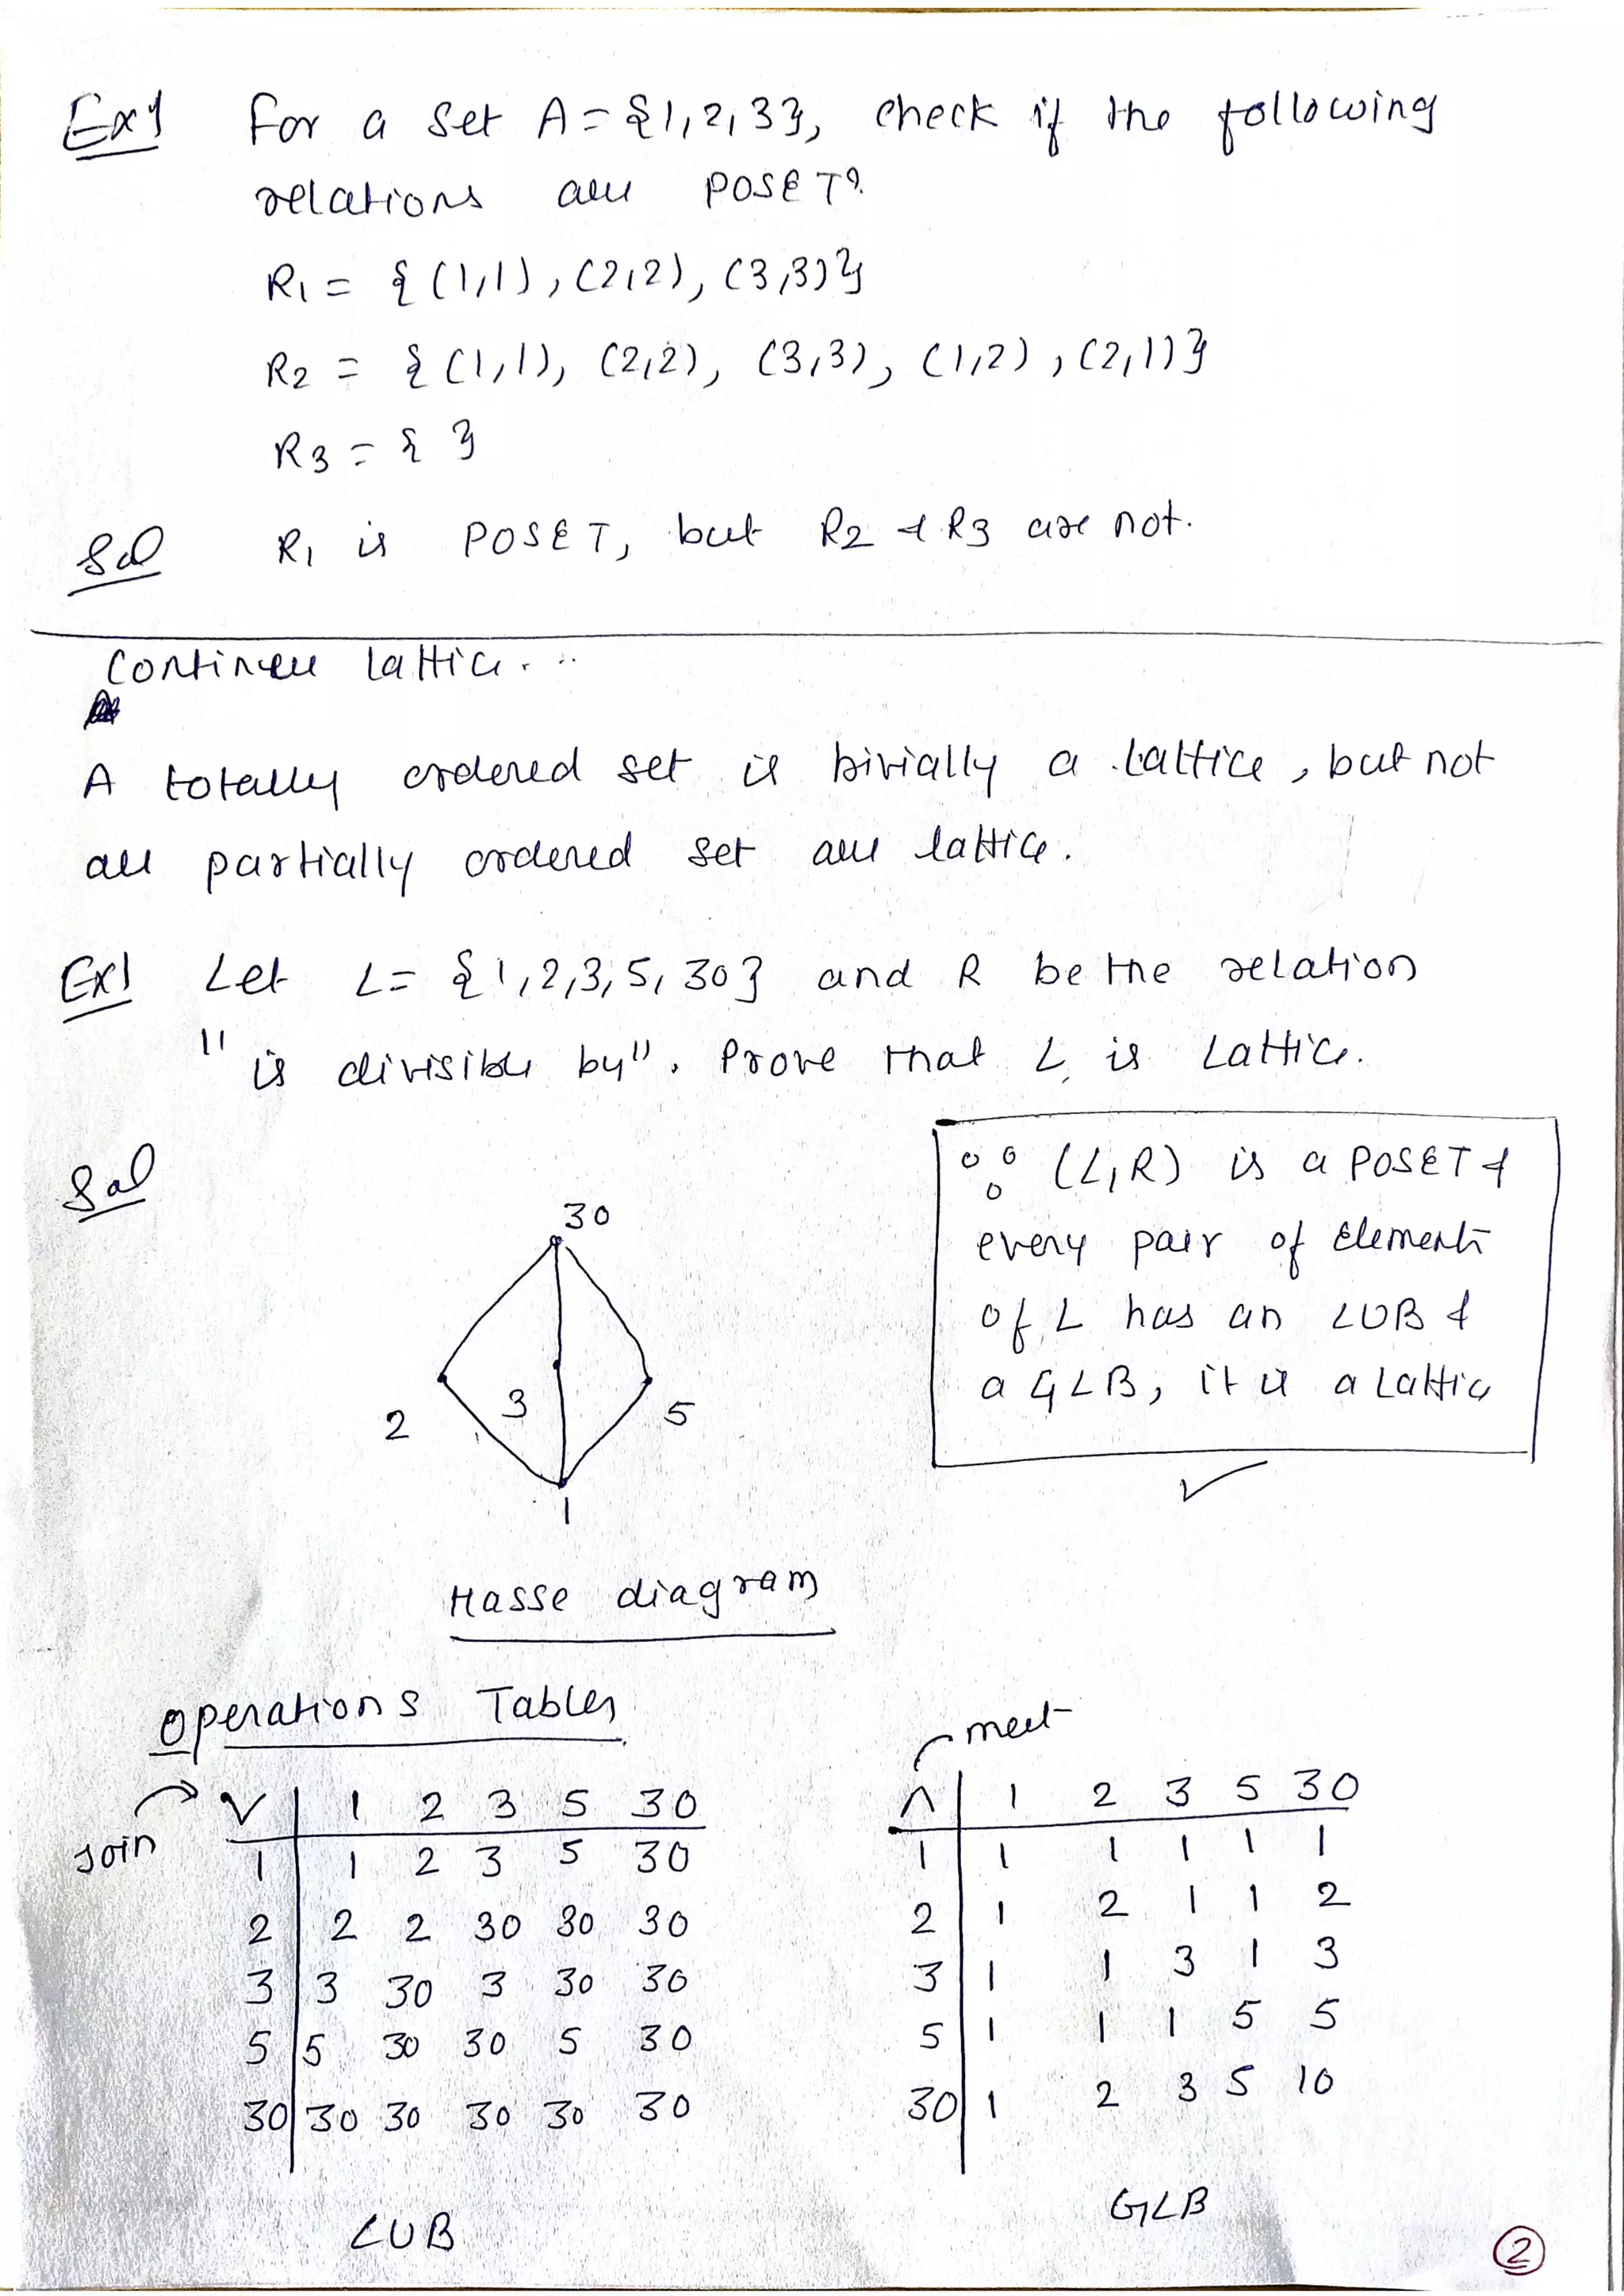 Ex1 For a set A = {1,2,3}, check if the following
relations are POSET?
R1 = {(1,1), (2,2), (3,3)}
R2 = {(1,1), (2,2), (3,3), (1,2), (2,1)}
R3 = { }
Sol R1 is POSET, but R2 & R3 are not.
Continue lattice...
A totally ordered set is trivially a lattice, but not
all partially ordered set are lattice.
Ex1 Let L = {1,2,3,5,30} and R be the relation
"is divisible by". Prove that L is Lattice.
Sol
∵ (L,R) is a POSET &
every pair of element
of L has an LUB &
a GLB, it is a Lattic
30
2 3 5
1
Hasse diagram
Operations Tables
Join
∨ 1 2 3 5 30
1 1 2 3 5 30
2 2 2 30 30 30
3 3 30 3 30 30
5 5 30 30 5 30
30 30 30 30 30 30
LUB
meet
∧ 1 2 3 5 30
1 1 1 1 1 1
2 1 2 1 1 2
3 1 1 3 1 3
5 1 1 1 5 5
30 1 2 3 5 10
GLB
2